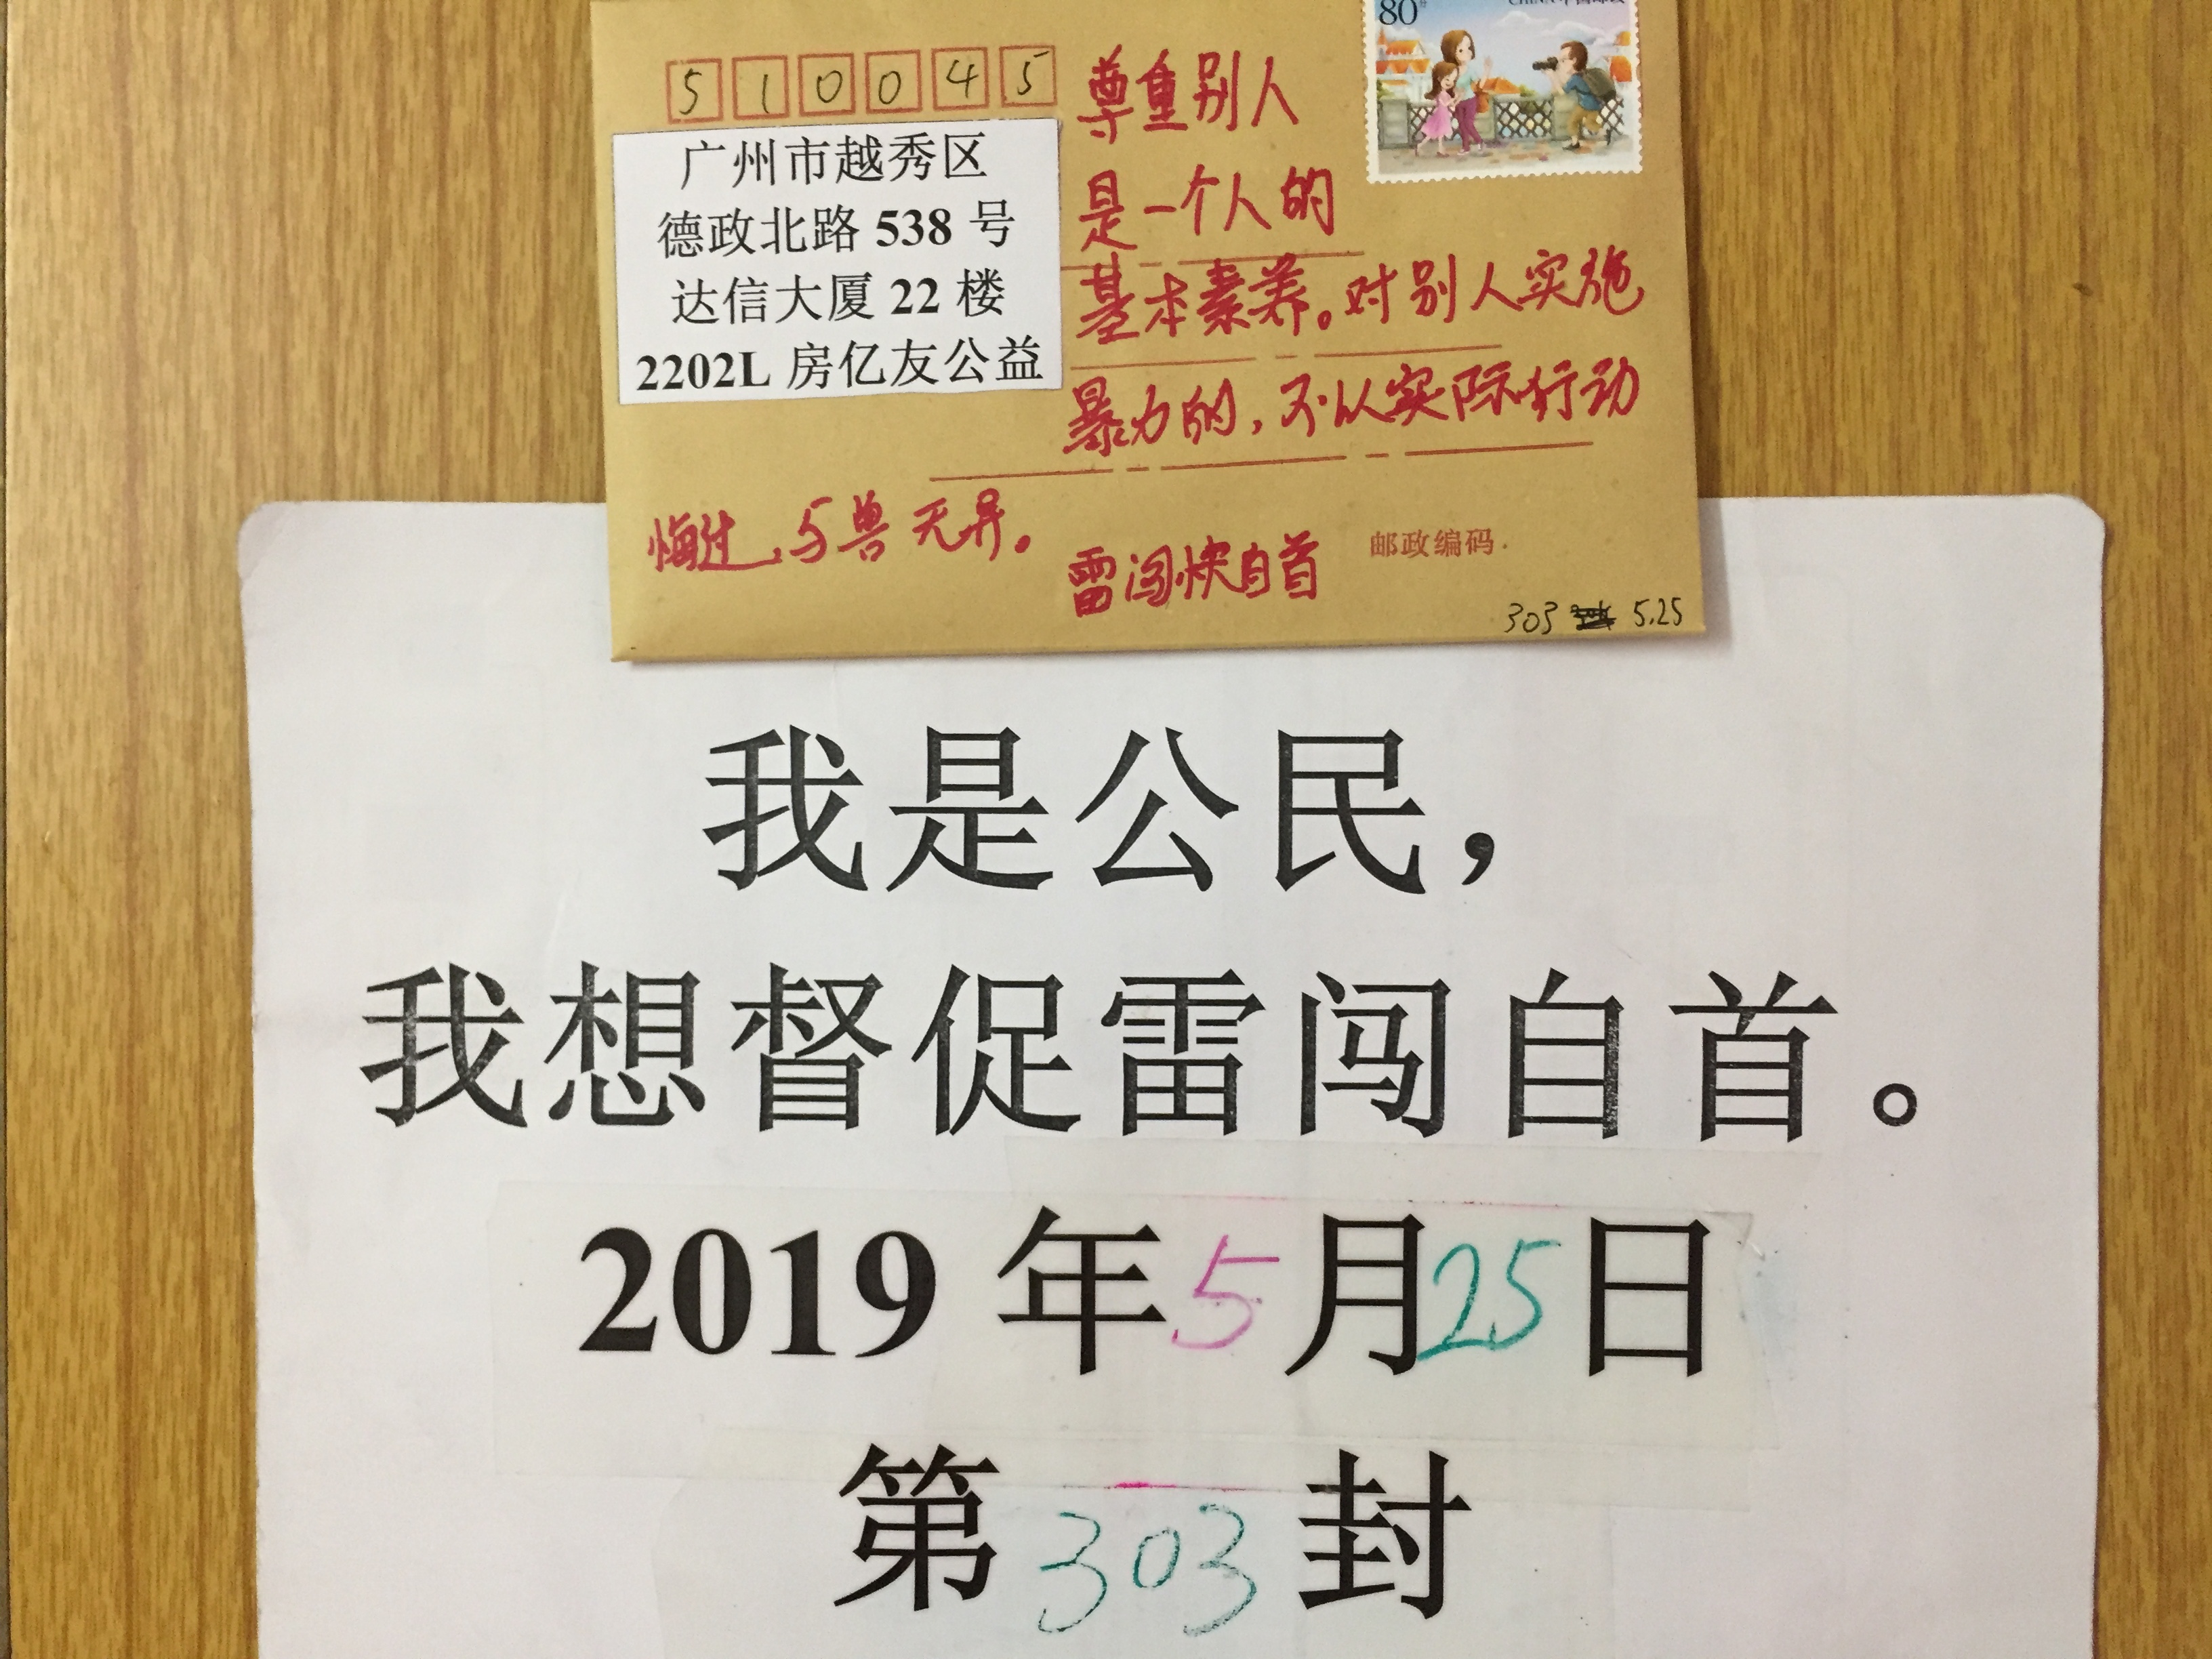 80分
510045
广州市越秀区
德政北路 538 号
达信大厦 22 楼
2202L 房亿友公益
尊重别人
是一个人的
基本素养。对别人实施
暴力的，不以实际行动
悔过，与兽无异。
雷闯快自首
邮政编码
303 5.25
我是公民，
我想督促雷闯自首。
2019 年 5 月 25 日
第 303 封